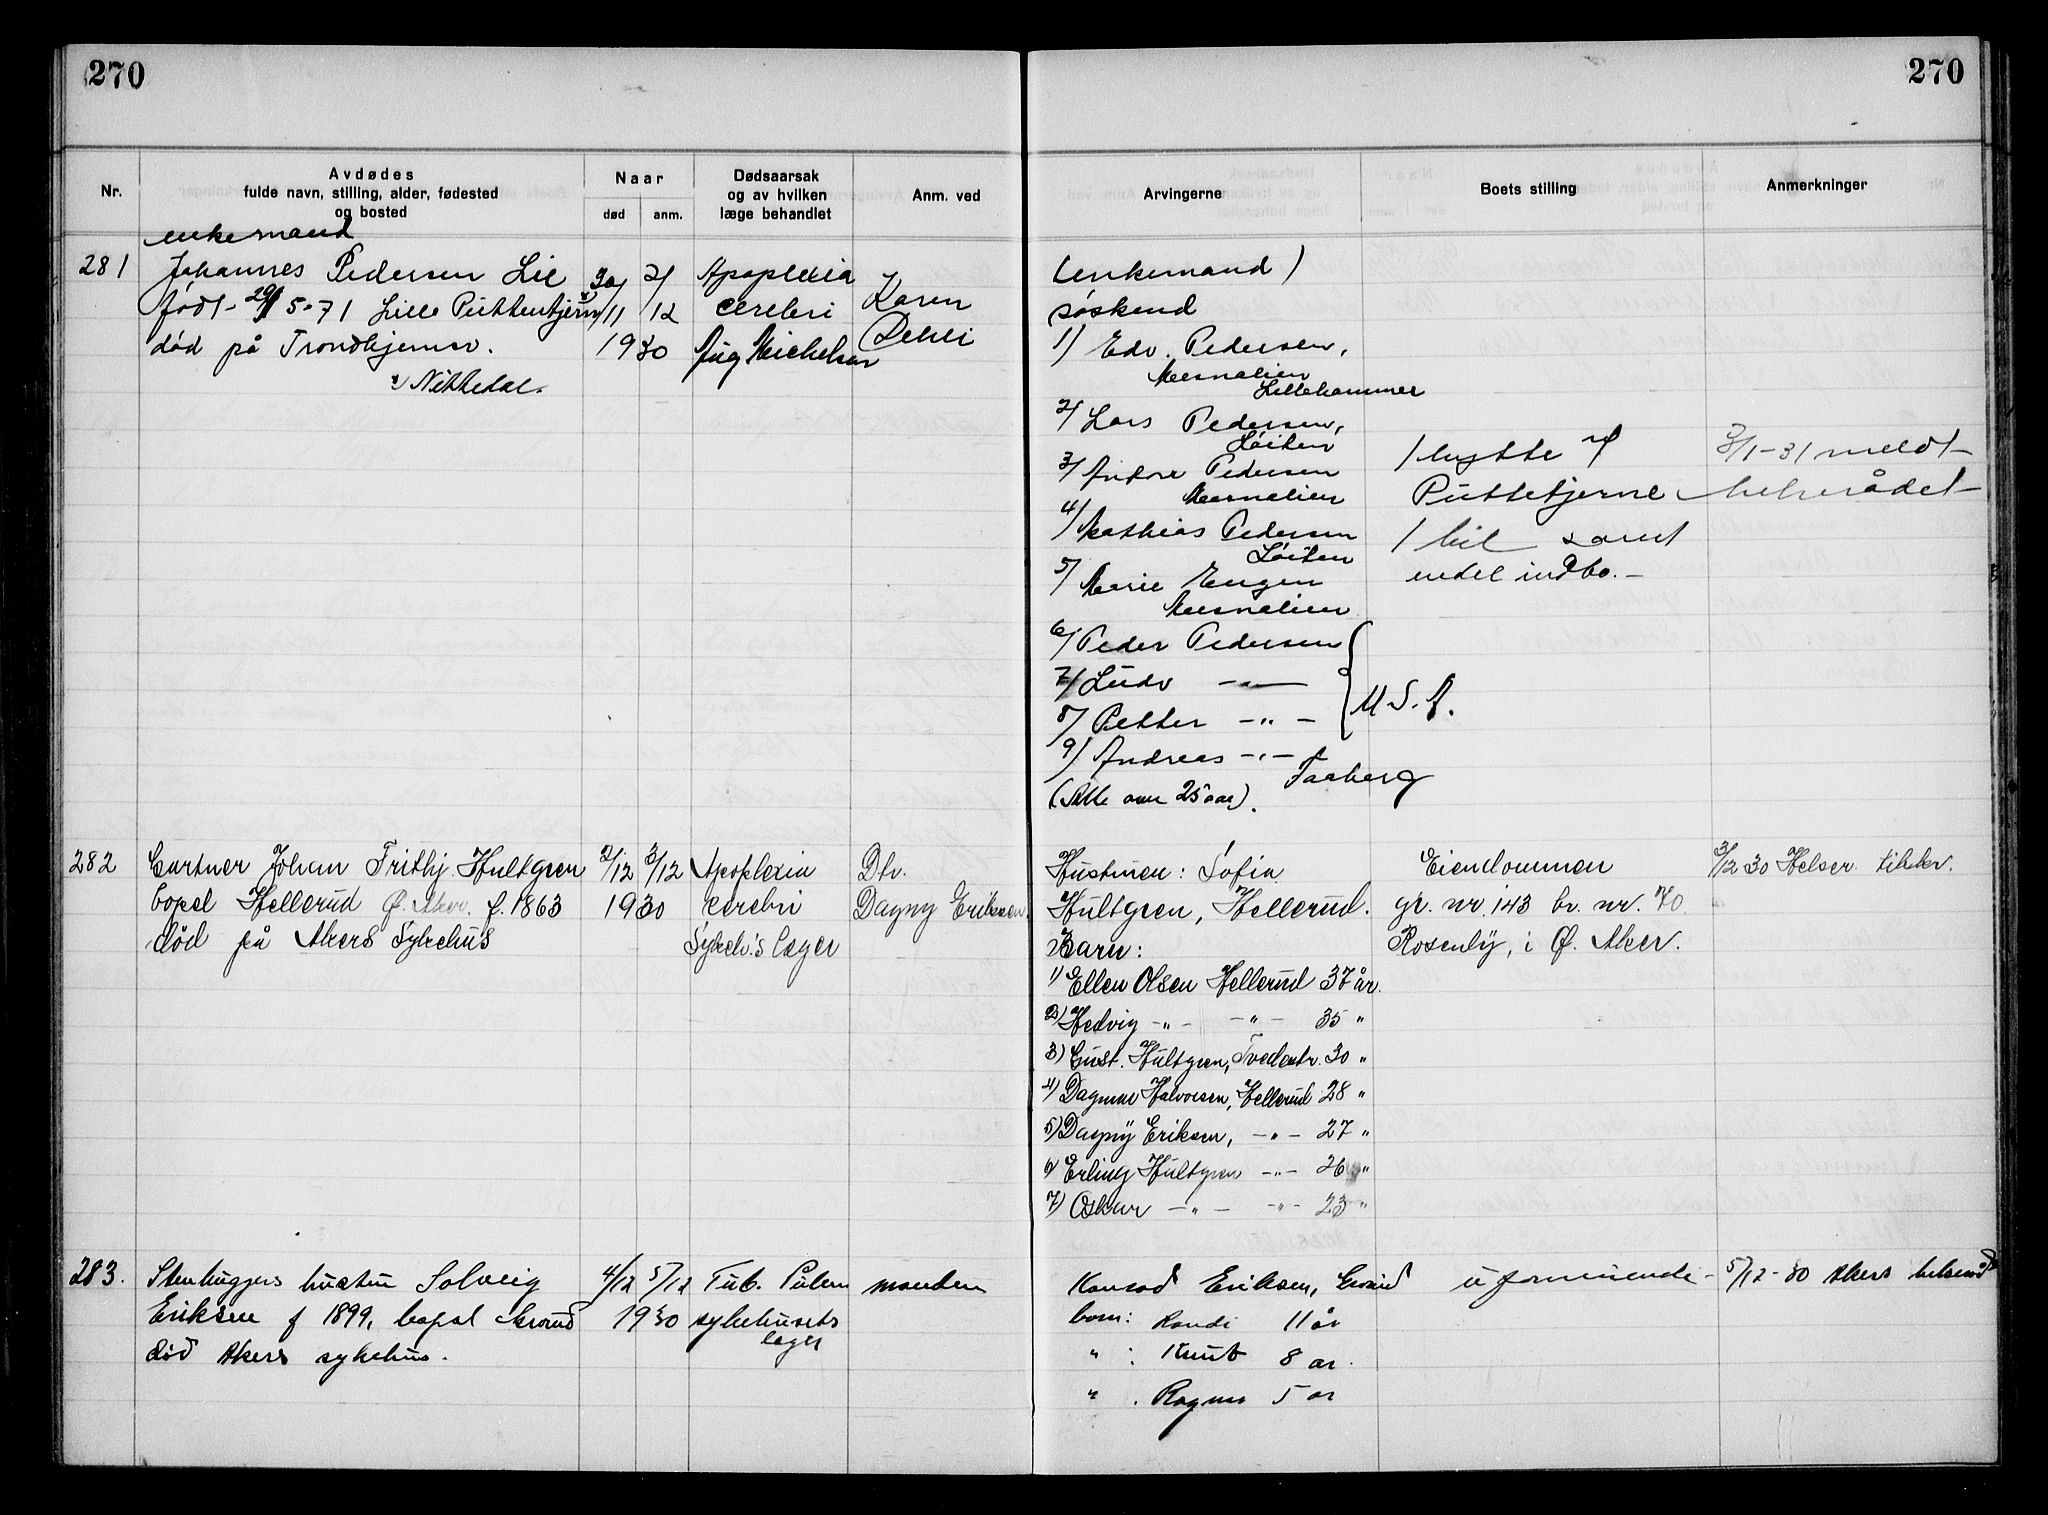 270
270
Nr.
Avdødes
fulde navn, stilling, alder, fødested
og bosted
Naar
død
anm.
Dødsaarsak
og av hvilken
læge behandlet
Anm. ved
Arvingerne
Boets stilling
Anmerkninger
enkemand
281
Johannes Pedersen Lie
født 29/5-71 Lille Puttentjern
død på Trondhjemsv.
i Nittedal.
30/11 2/12
1930
Apoplexia
cerebri
Aug Michelsen
Karen
Dehli
(enkemand)
søskend
1) Edv. Pedersen,
Mesnalien
Lillehammer
2) Lars Pedersen,
Løiten
3) Andre Pedersen
Mesnalien
4) Mathias Pedersen
Løiten
5) Marie Engen
Mesnalien
6) Peder Pedersen
7) Ludv —"—
8) Petter —"—
U.S.A.
9) Andreas —"—
Faaberg
(Alle over 25 aar).
1 hytte
Puttetjerne
1 bil samt
endel indbo.—
3/1-31 meldt
helserådet
282
Gartner Johan Frithj. Hultgren
bopel Hellerud Ø. Aker. f. 1863
død på Akers Sykehus
2/12 3/12
1930
Apoplexia
cerebri
Sykeh.'s læger
Dtr.
Dagny Eriksen.
Hustruen: Sofia
Hultgren, Hellerud.
Barn:
1) Ellen Olsen Hellerud 37 år.
2) Hedvig —"— —"— 35 "
3) Gust. Hultgren, Tvedestr. 30 "
4) Dagmar Halvorsen, Hellerud 28 "
5) Dagny Eriksen, —"— 27 "
6) Erling Hultgren —"— 26 "
7) Oskar —"— —"— 23 "
Eiendommen
gr. nr. 143 br. nr. 70
Rosenly, i Ø. Aker.
3/12 30 Helser. tilskr.
283.
Stenhuggers hustru Solveig
Eriksen f 1899, bopel Grorud
død Akers sykehus.
4/12 5/12
1930
Tub. Pulm
sykehusets
læger
manden
Konrad Eriksen, Grorud
barn: Randi 11 år
" : Knut 8 ar.
" . Ragnar 5 ar
uformuende
5/12-30 Akers helseråd